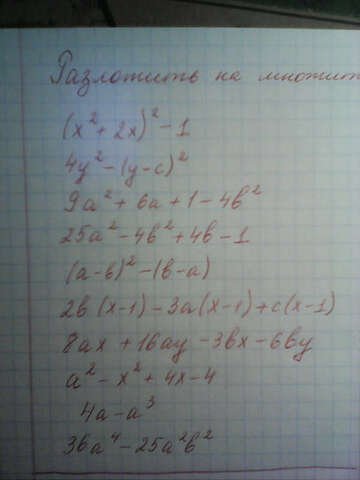 Разложить на множит
(x² + 2x)² - 1
4y² - (y - c)²
9a² + 6a + 1 - 4b²
25a² - 4b² + 4b - 1
(a - b)² - (b - a)
2b (x - 1) - 3a (x - 1) + c (x - 1)
8ax + 16ay - 3bx - 6by
a² - x² + 4x - 4
4a - a³
36a⁴ - 25a²b²